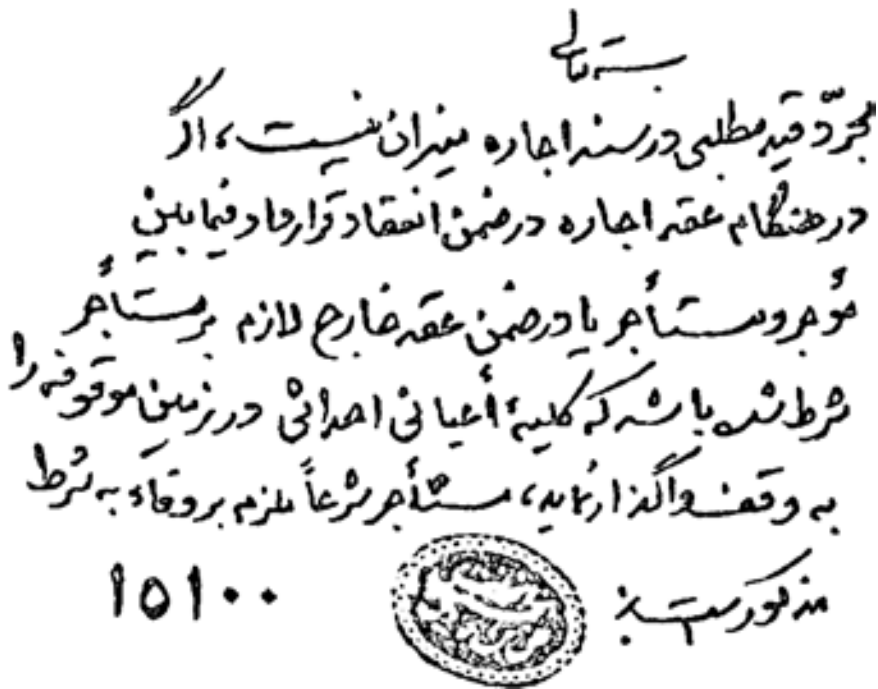 بسمه تعالی
مجرّد قید مطلبی در سند اجاره میزان نیست، اگر
در هنگام عقد اجاره در ضمن انعقاد قرارداد فیمابین
مؤجر و مستأجر یا در ضمن عقد خارج لازم بر مستأجر
شرط شده باشد که کلیهٔ أعیانی احداثی در زمین موقوفه را
به وقف واگذار نماید، مستأجر شرعاً ملزم بر وفاء به شرط
مذکور است
۱۵۱۰۰